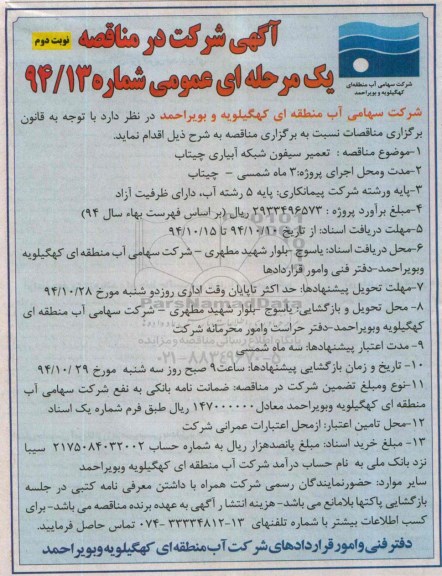 نوبت دوم
آگهی شرکت در مناقصه
یک مرحله ای عمومی شماره ۹۴/۱۳
شرکت سهامی آب منطقه‌ای
کهگیلویه و بویراحمد
شرکت سهامی آب منطقه ای کهگیلویه و بویراحمد در نظر دارد با توجه به قانون
برگزاری مناقصات نسبت به برگزاری مناقصه به شرح ذیل اقدام نماید.
۱-موضوع مناقصه : تعمیر سیفون شبکه آبیاری چیتاب
۲-مدت ومحل اجرای پروژه:۳ ماه شمسی – چیتاب
۳-پایه ورشته شرکت پیمانکاری: پایه ۵ رشته آب، دارای ظرفیت آزاد
۴-مبلغ برآورد پروژه : ۲۹۳۳۴۹۶۵۷۳ ریال (بر اساس فهرست بهاء سال ۹۴)
۵-مهلت دریافت اسناد: از تاریخ ۹۴/۱۰/۱۰ تا ۹۴/۱۰/۱۵
۶-محل دریافت اسناد: یاسوج -بلوار شهید مطهری – شرکت سهامی آب منطقه ای کهگیلویه
وبویراحمد-دفتر فنی وامور قراردادها
۷-مهلت تحویل پیشنهادها: حد اکثر تاپایان وقت اداری روزدو شنبه مورخ ۹۴/۱۰/۲۸
۸- محل تحویل و بازگشایی: یاسوج -بلوار شهید مطهری – شرکت سهامی آب منطقه ای
کهگیلویه وبویراحمد-دفتر حراست وامور محرمانه شرکت
۹- مدت اعتبار پیشنهادها: سه ماه شمسی
۱۰- تاریخ و زمان بازگشایی پیشنهادها: ساعت۹ صبح روز سه شنبه مورخ ۹۴/۱۰/۲۹
۱۱-نوع ومبلغ تضمین شرکت در مناقصه: ضمانت نامه بانکی به نفع شرکت سهامی آب
منطقه ای کهگیلویه وبویراحمد معادل۱۴۷۰۰۰۰۰۰ ریال طبق فرم شماره یک اسناد
۱۲-محل تامین اعتبار: ازمحل اعتبارات عمرانی شرکت
۱۳- مبلغ خرید اسناد: مبلغ پانصدهزار ریال به شماره حساب ۲۱۷۵۰۸۴۰۳۲۰۰۲ سیبا
نزد بانک ملی به نام حساب درآمد شرکت آب منطقه ای کهگیلویه وبویراحمد
سایر موارد: حضورنمایندگان رسمی شرکت همراه با داشتن معرفی نامه کتبی در جلسه
بازگشایی پاکتها بلامانع می باشد- هزینه انتشار آگهی به عهده برنده مناقصه می باشد- برای
کسب اطلاعات بیشتر با شماره تلفنهای ۱۳-۳۳۳۳۴۸۱۲ -۰۷۴ تماس حاصل فرمایید.
دفتر فنی وامور قراردادهای شرکت آب منطقه ای کهگیلویه وبویراحمد